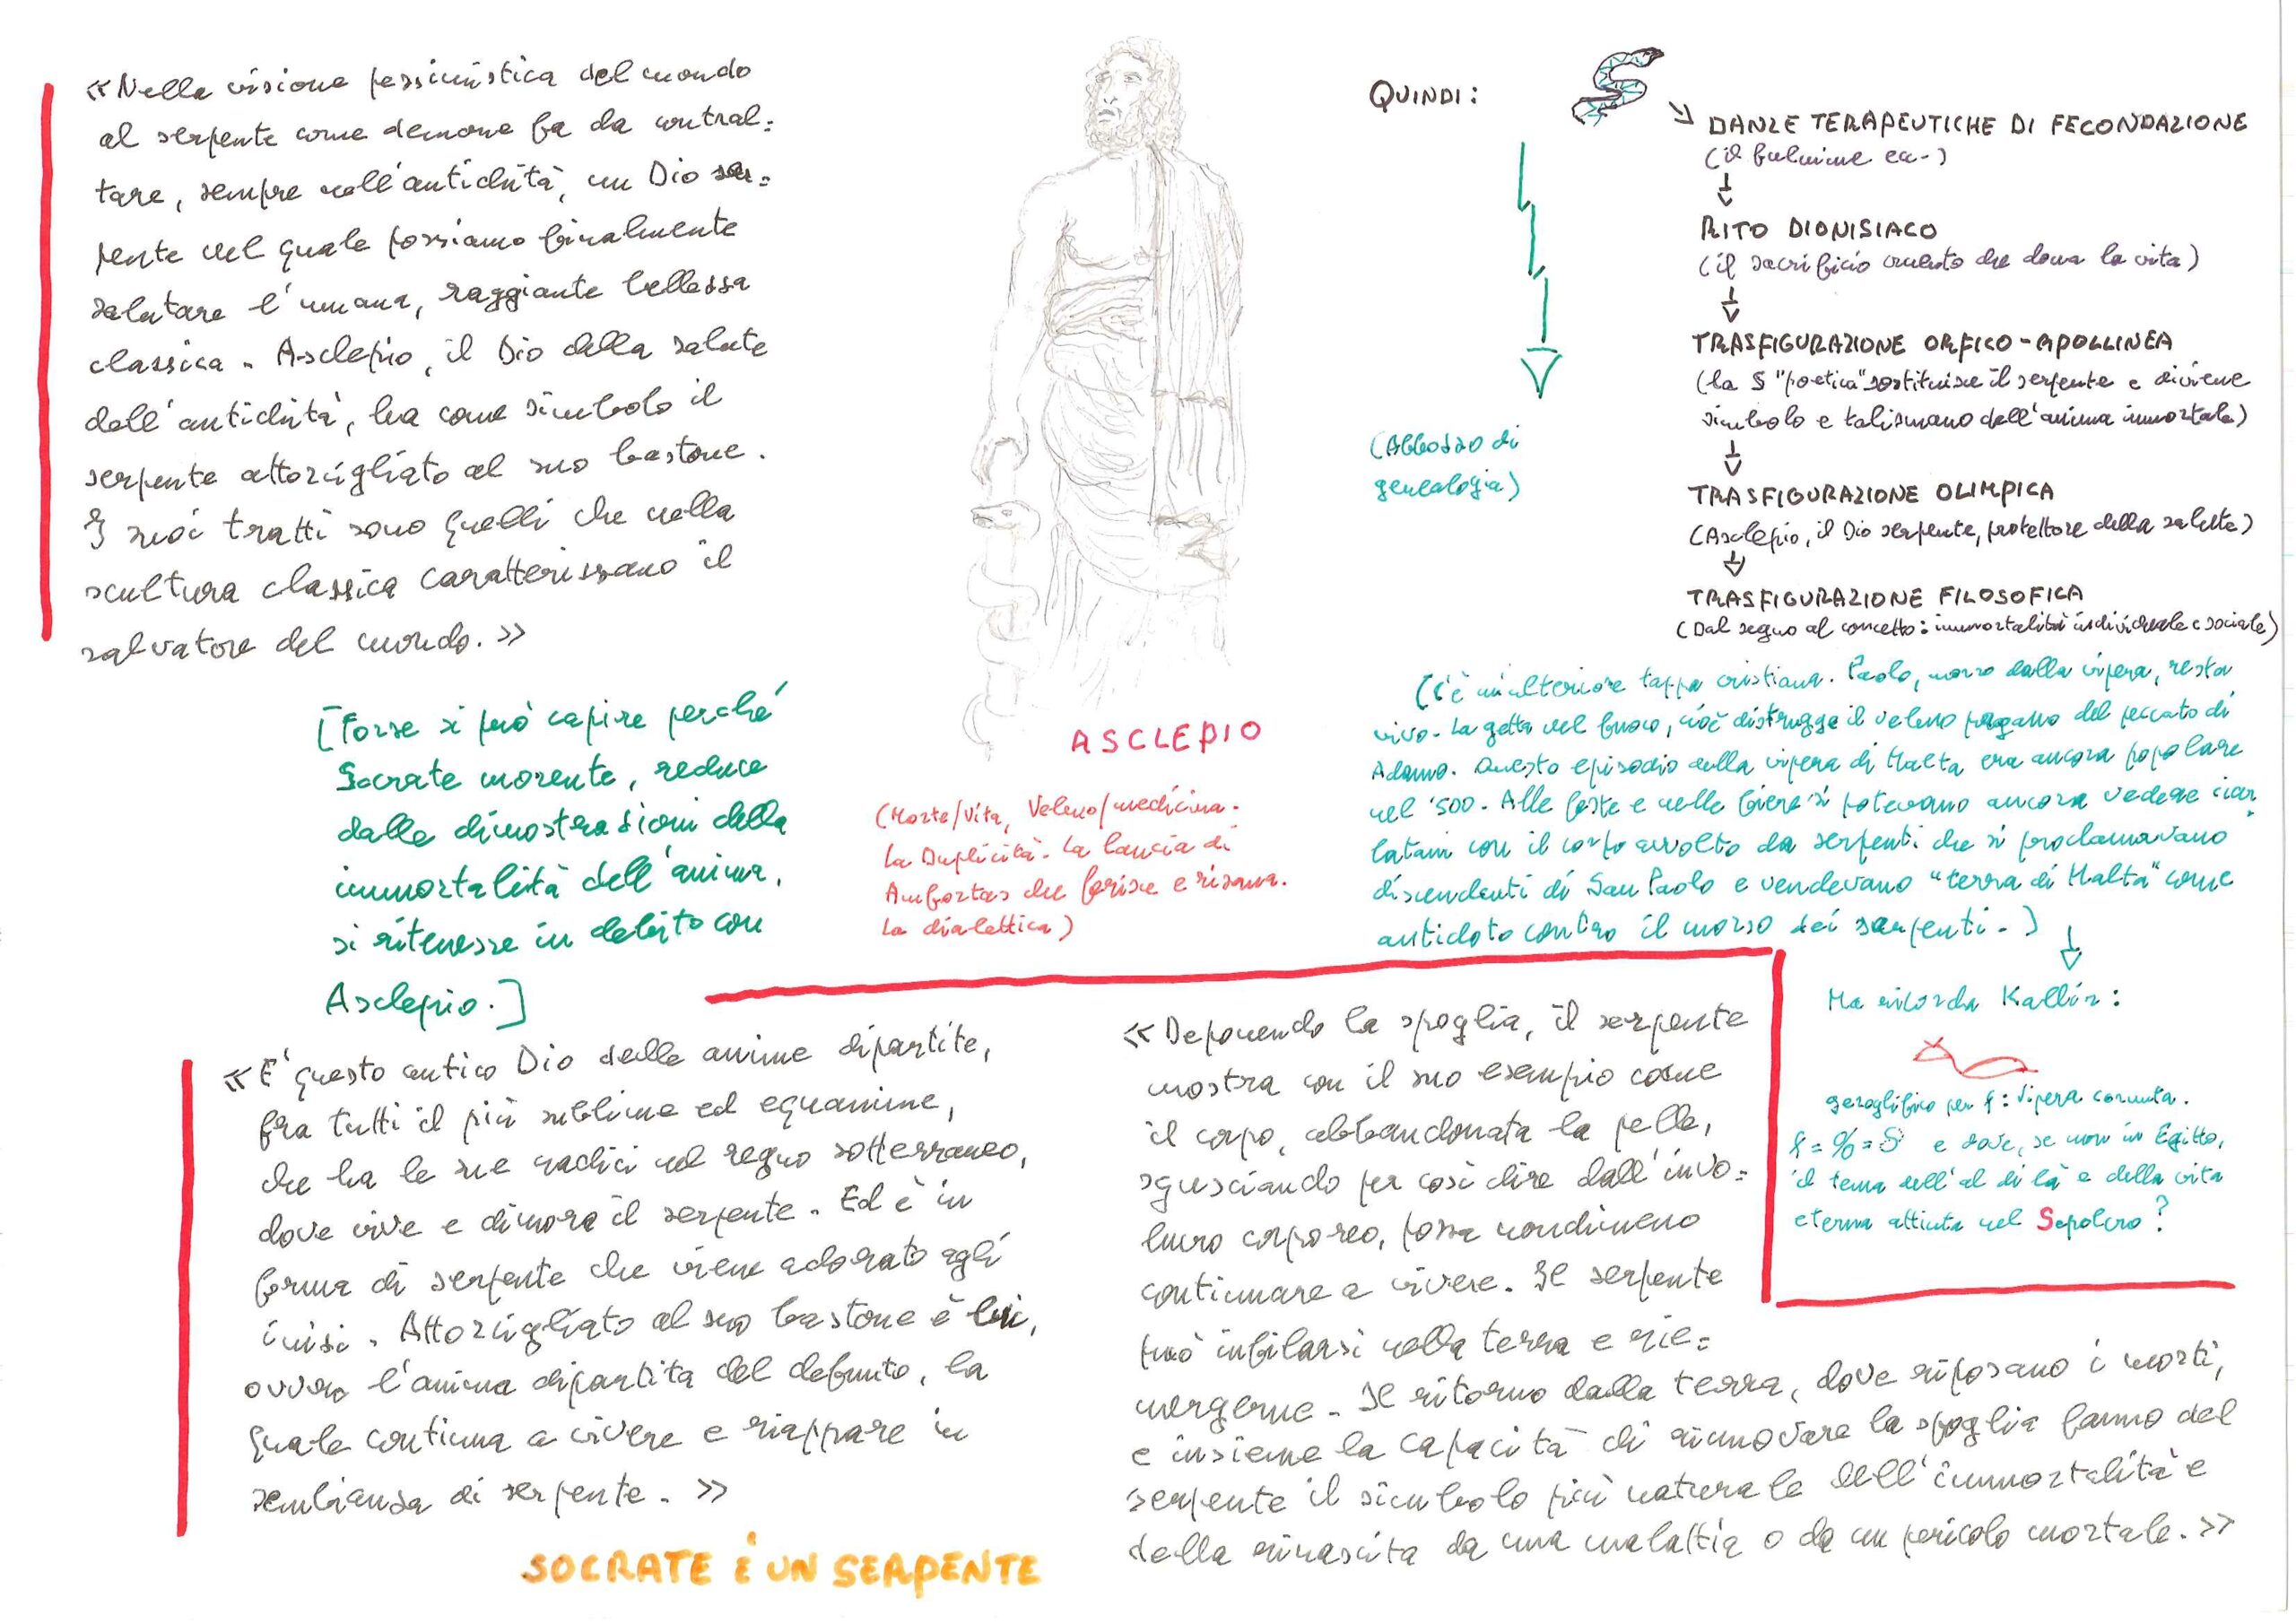 «Nella visione pessimistica del mondo
al serpente come demone fa da contral=
tare, sempre nell'antichità, un Dio ser=
pente nel quale possiamo finalmente
salutare l'umana, raggiante bellezza
classica. Asclepio, il Dio della salute
dell'antichità, ha come simbolo il
serpente attorcigliato al suo bastone.
I suoi tratti sono quelli che nella
scultura classica caratterizzano il
salvatore del mondo.»
[Forse si può capire perché
Socrate morente, reduce
dalle dimostrazioni della
immortalità dell'anima,
si ritenesse in debito con
Asclepio.]
«E' questo antico Dio delle anime dipartite,
fra tutti il più sublime ed equanime,
che ha le sue radici nel regno sotterraneo,
dove vive e dimora il serpente. Ed è in
forma di serpente che viene adorato agli
inizi. Attorcigliato al suo bastone è lui,
ovvero l'anima dipartita del defunto, la
quale continua a vivere e riappare in
sembianza di serpente.»
SOCRATE È UN SERPENTE
ASCLEPIO
(Morte/Vita, Veleno/medicina.
La Duplicità. La lancia di
Amfortas che ferisce e risana.
La dialettica)
QUINDI:
(Abbozzo di
genealogia)
DANZE TERAPEUTICHE DI FECONDAZIONE
(il fulmine ecc.)
RITO DIONISIACO
(il sacrificio cruento che dona la vita)
TRASFIGURAZIONE ORFICO-APOLLINEA
(la S "poetica" sostituisce il serpente e diviene
simbolo e talismano dell'anima immortale)
TRASFIGURAZIONE OLIMPICA
(Asclepio, il Dio serpente, protettore della salute)
TRASFIGURAZIONE FILOSOFICA
(Dal segno al concetto: immortalità individuale e sociale)
(C'è un'ulteriore tappa cristiana. Paolo, morso dalla vipera, resta
vivo. La getta nel fuoco, cioè distrugge il veleno pagano del peccato di
Adamo. Questo episodio della vipera di Malta era ancora popolare
nel '500. Alle feste e nelle fiere si potevano ancora vedere ciar
latani con il corpo avvolto da serpenti che si proclamavano
discendenti di San Paolo e vendevano "terra di Malta" come
antidoto contro il morso dei serpenti.)
Ma ricorda Kallír:
geroglifico per f: Vipera cornuta.
e dove, se non in Egitto,
il tema dell'al di là e della vita
eterna attinta nel Sepolcro?
«Deponendo la spoglia, il serpente
mostra con il suo esempio come
il corpo, abbandonata la pelle,
sgusciando per così dire dall'invo=
lucro corporeo, possa nondimeno
continuare a vivere. Il serpente
può infilarsi nella terra e rie=
mergerne. Il ritorno dalla terra, dove riposano i morti,
e insieme la capacità di rinnovare la spoglia fanno del
serpente il simbolo più naturale dell'immortalità e
della rinascita da una malattia o da un pericolo mortale.»